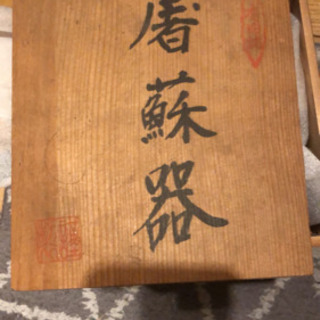 屠蘇器